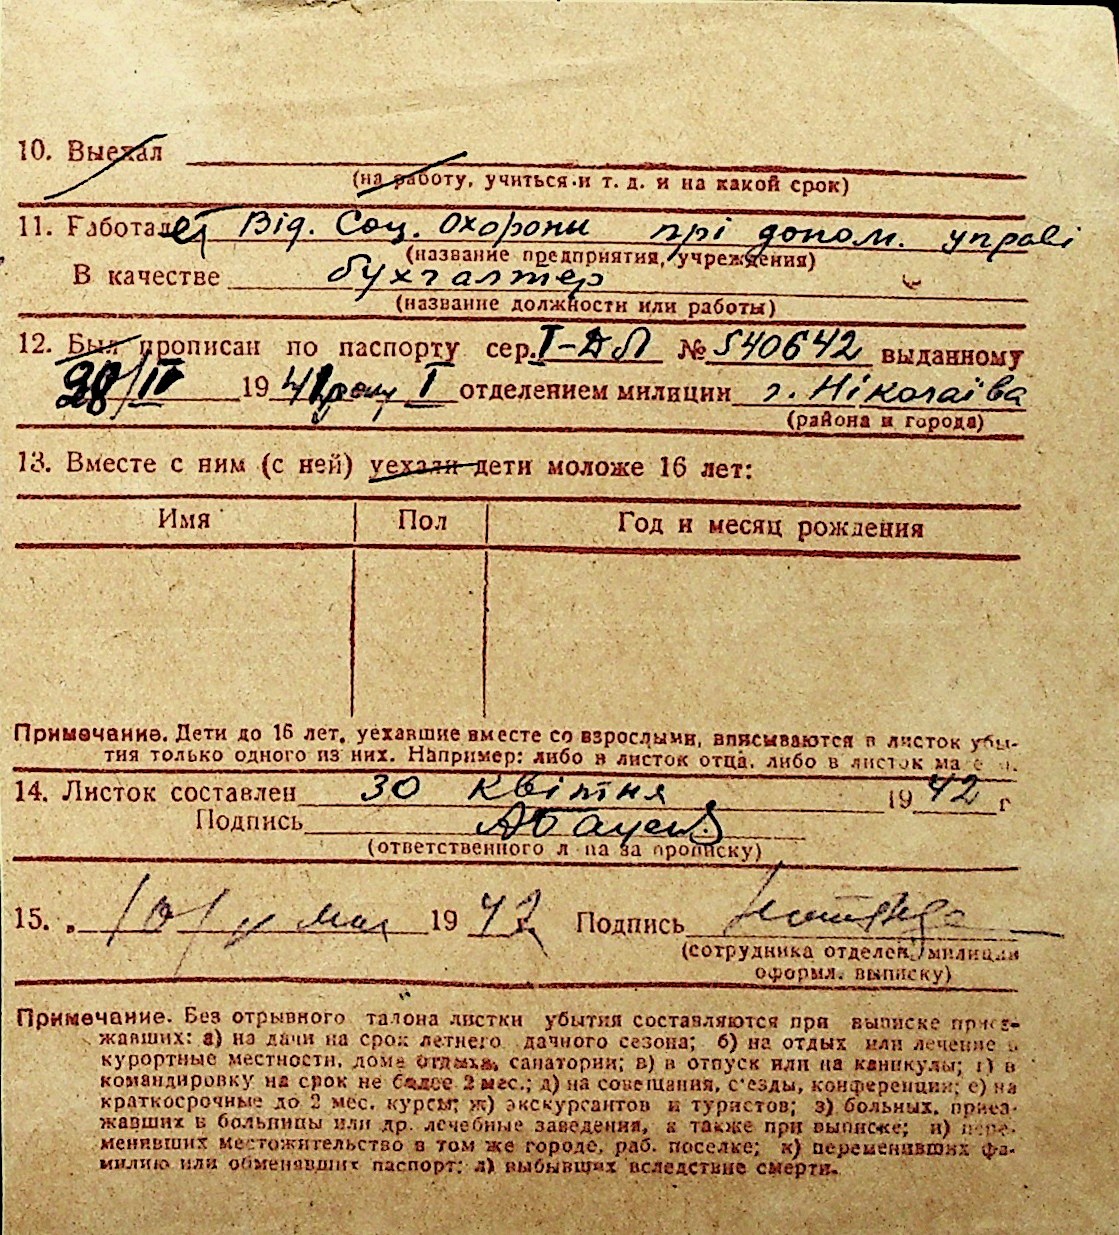 10. Выехал
(на работу, учиться и т. д. и на какой срок)
11. Работает Від. Соц. Охорони прі допом. управі
(название предприятия, учреждения)
В качестве бухгалтер
(название должности или работы)
12. Был прописан по паспорту сер. I-ДЛ № 540642 выданному
28/IV 1941 року I отделением милиции г. Ніколаїва
(района и города)
13. Вместе с ним (с ней) уехали дети моложе 16 лет:
Имя Пол Год и месяц рождения
Примечание. Дети до 16 лет, уехавшие вместе со взрослыми, вписываются в листок убы-
тия только одного из них. Например: либо в листок отца, либо в листок
14. Листок составлен 30 квітня 1942 г
Подпись
(ответственного лица за прописку)
15. „ 10/V мая 1942 Подпись
(сотрудника отделен. милиции
оформл. выписку)
Примечание. Без отрывного талона листки убытия составляются при выписке приез-
жавших: а) на дачи на срок летнего дачного сезона; б) на отдых или лечение в
курортные местности, дома отдыха, санатории; в) в отпуск или на каникулы; г) в
командировку на срок не более 2 мес.; д) на совещания, с'езды, конференции; е) на
краткосрочные до 2 мес. курсы; ж) экскурсантов и туристов; з) больных, приез-
жавших в больницы или др. лечебные заведения, а также при выписке; и) пере-
менивших местожительство в том же городе, раб. поселке; к) переменивших фа-
милию или обменявших паспорт; л) выбывших вследствие смерти.